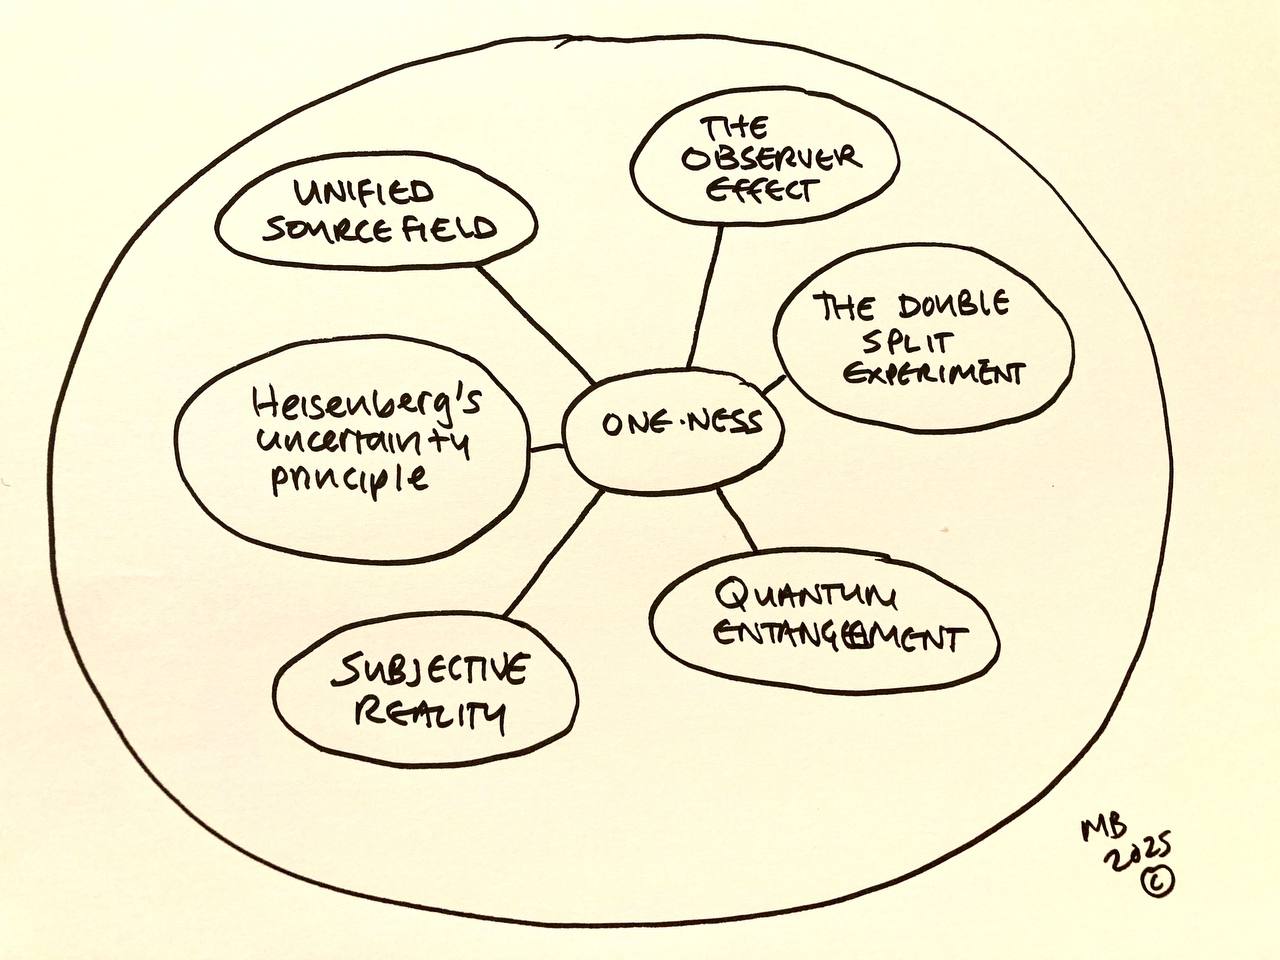 THE
OBSERVER
EFFECT
UNIFIED
SOURCE FIELD
THE DOUBLE
SPLIT
EXPERIMENT
Heisenberg's
uncertainty
principle
ONE-NESS
QUANTUM
ENTANGLEMENT
SUBJECTIVE
REALITY
MB
2025
©